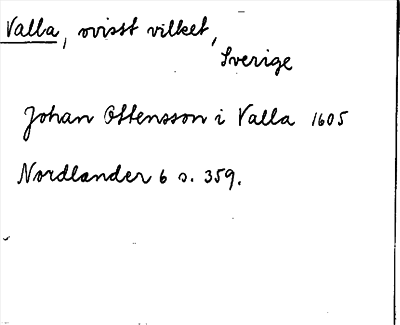 Valla, ovisst vilket,
Sverige
Johan Ottensson i Valla 1605
Nordlander 6 s. 359.